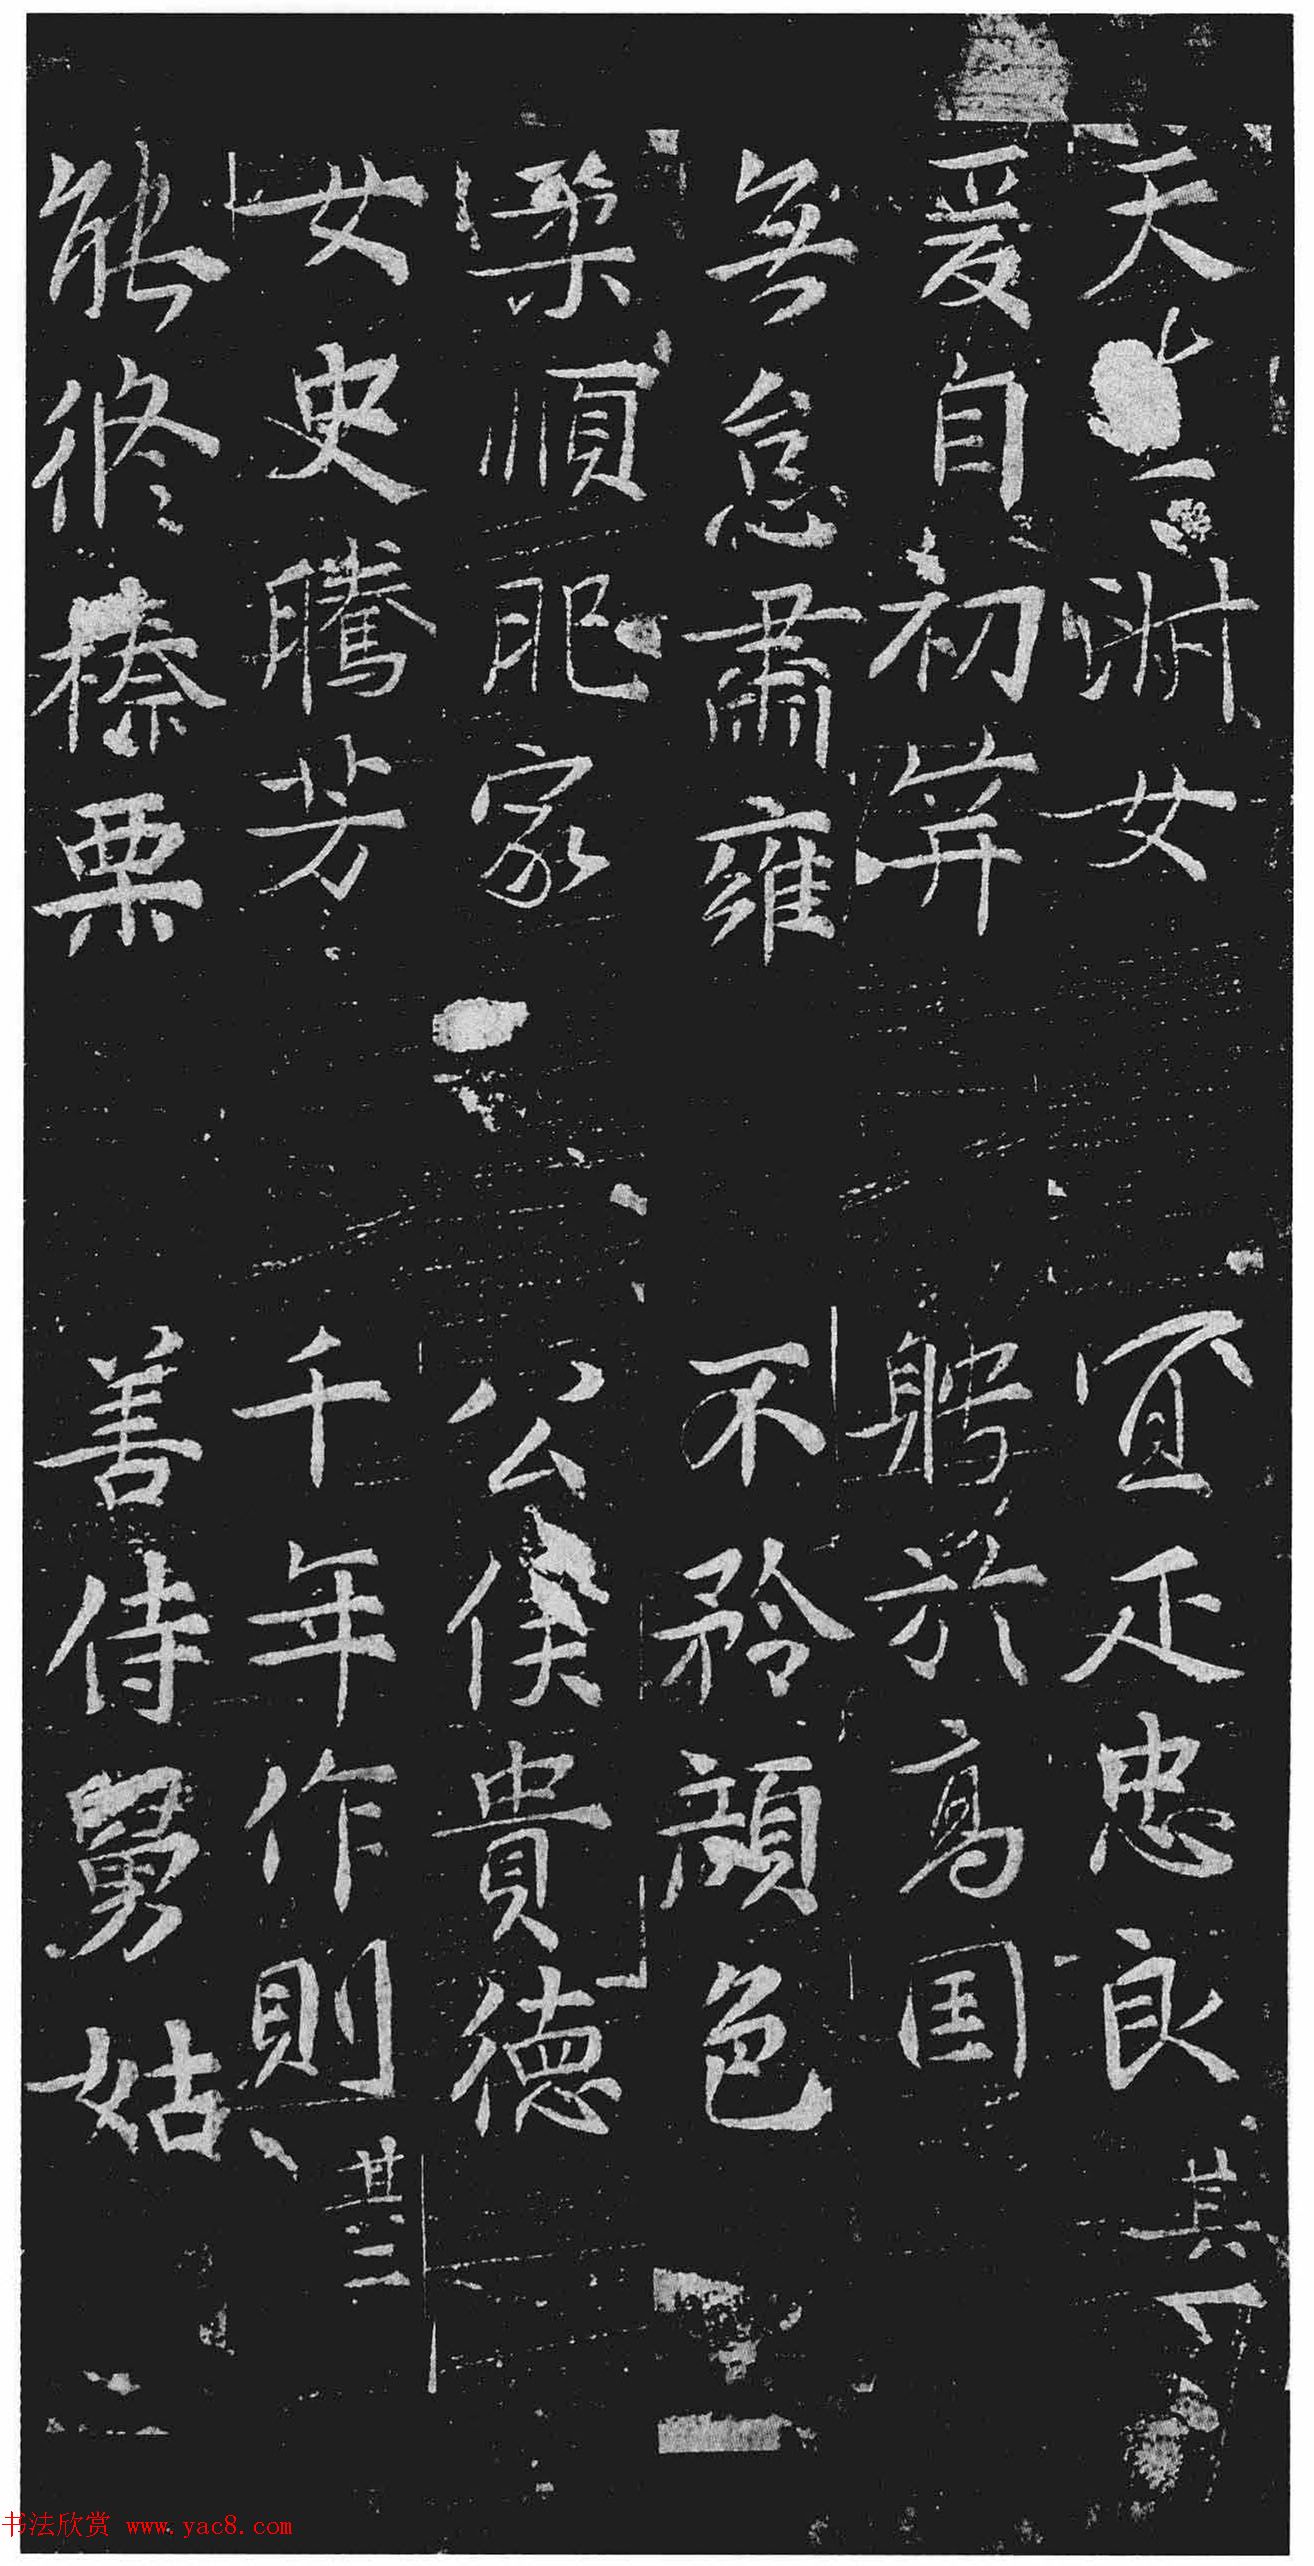 天 淋女 宜正忠良 其一
爰自初笄 聘於高国
無怠肅雍 不矜顔色
柔順肥家 公侯貴德
女史騰芳 千年作則 其二
能修榛栗 善侍舅姑
书法欣赏 www.yac8.com